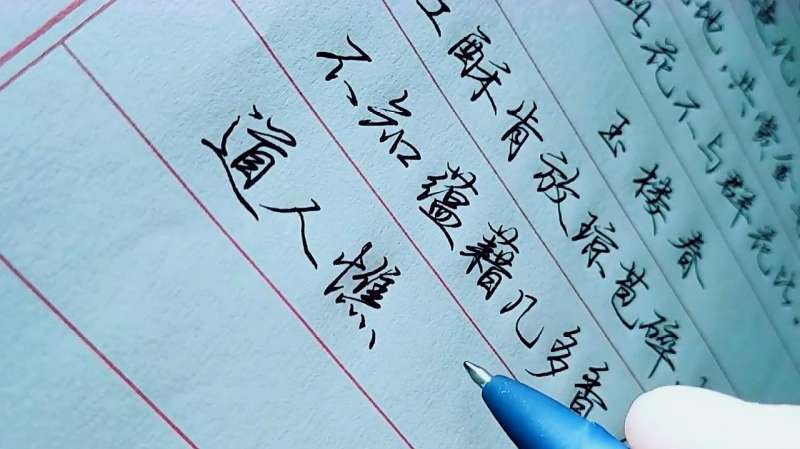 地,共赏
此花不与群花比。
玉楼春
酥肯放琼苞碎,
不知蕴藉几多香
道人憔